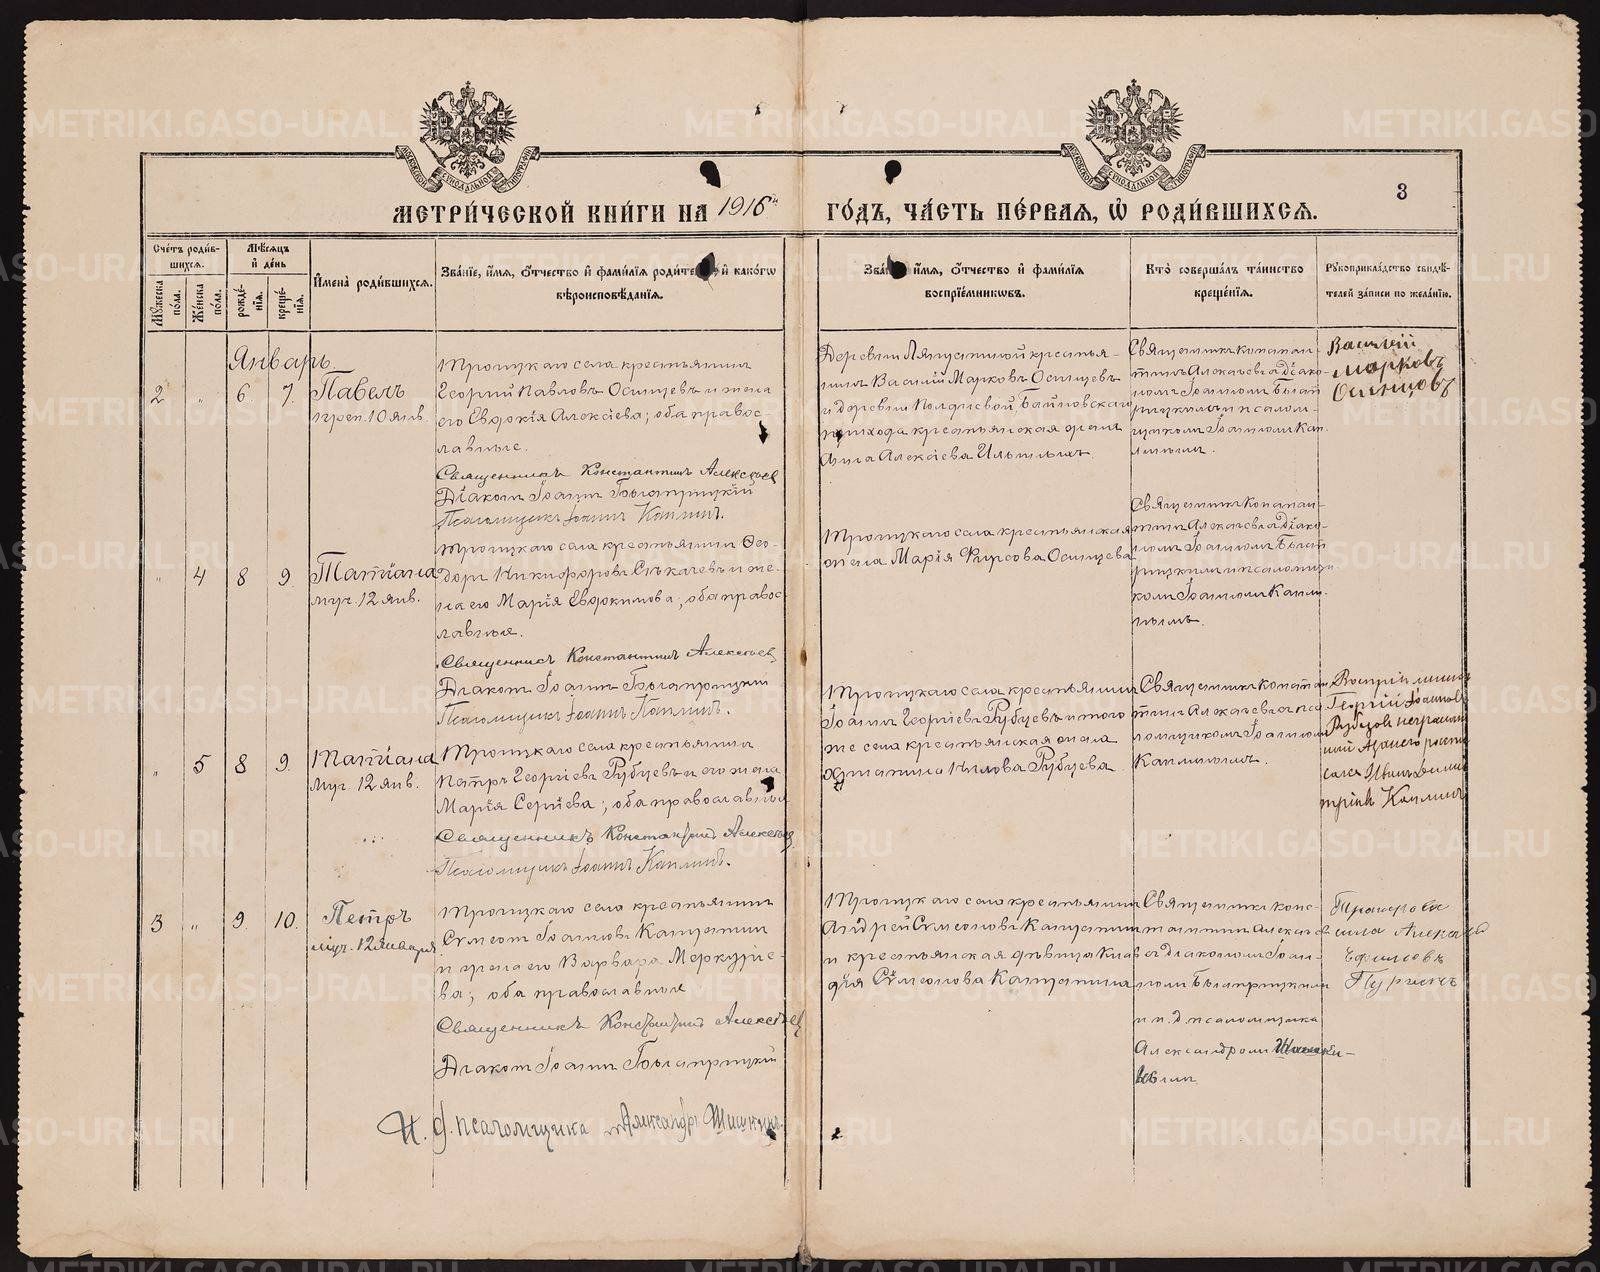 МЕТРИ́ЧЕСКОЙ КНИ́ГИ НА 1916й ГО́ДЪ, ЧА́СТЬ ПЕ́РВАЯ, Ѽ РОДИ́ВШИХСЯ.
3
Сче́тъ роди́в-
шихся.
Мѣ́сяцъ
и҆ де́нь
И҆мена̀ роди́вшихся.
Зва́нїе, и҆́мя, ѻ҆́тчество и҆ фами́лїя роди́те и҆ како́гѡ
вѣроисповѣ́данїя.
и҆́мя, ѻ҆́тчество и҆ фами́лїя
воспрїе́мникѡвъ.
Кто̀ соверша́лъ та́инство
креще́нїя.
Рꙋкоприкла́дство свидѣ́-
телей за́писи по жела́нїю.
Мꙋ́жеска
по́ла.
Же́нска
по́ла.
рожде́-
нїя.
креще́-
нїя.
Январь
2 " 6. 7. Павелъ
препр. 10 янв.
Троицкаго села крестьянинъ
Георгий Павловъ Осинцевъ и жена
его Евдокія Алексіева; оба правос-
лавные.
Священникъ Константинъ Алексѣев
Діаконъ Іоаннъ Богапрпцкій
Псаломщикъ Іоаннъ Каплинъ.
Деревни Ляпустиной крестья-
нинъ Василій Марковъ Осинцевъ
и деревни Полдневой, Байновскаго
прихода крестьянская жена
Анна Алексіева Ильиныхъ.
Священникъ Констан-
тинъ Алексѣевъ с Діако-
номъ Іоанномъ
и псалом-
щикомъ Іоанномъ Кап-
линымъ.
Василій
Марковъ
Осинцовъ
" 4 8 9. Татіана
муч. 12 янв.
Троицкаго села крестьянинъ Ѳео-
доръ Никифоровъ Сѣкачевъ и же-
на его Марія Евдокимова; оба правос-
лавные.
Священникъ Константинъ Алексѣев
Діаконъ Іоаннъ
Псаломщикъ Іоаннъ Каплинъ.
Троицкаго села крестьянская
жена Марія Фирсова Осинцева
Священникъ Констан-
тинъ Алексѣевъ с Діако-
номъ Іоанномъ
и псаломщи-
комъ Іоанномъ Капли-
нымъ.
" 5 8 9. Татіана
муч. 12 янв.
Троицкаго села крестьянинъ
Петръ Георгіевъ Рубцевъ и его жена
Марія Сергіева; оба православные
Священникъ Константинъ Алексѣев
Псаломщикъ Іоаннъ Каплинъ.
Троицкаго села крестьянинъ
Іоаннъ Георгіевъ Рубцевъ и того
же села крестьянская жена
Христина Нилова Рубцева
Священникъ Констан
тинъ Алексѣевъ с пса
ломщикомъ Іоанномъ
Каплинымъ.
Георгій Іоаннов
Рубцов неграмот
ный а за него роспи
сался Иванъ Дими
тріевъ Каплинъ
3 " 9. 10. Петръ
муч. 12 января
Троицкаго села крестьянинъ
Сѵмеонъ Іоанновъ Капустин
и жена его Варвара Меркуріе-
ва; оба православные
Священникъ Константинъ Алексѣев
Діаконъ Іоаннъ
И. д. псаломщика Александръ Шишкинъ.
Троицкаго села крестьянинъ
Андрей Сѵмеоновъ Капустин
и крестьянская дѣвица Клав
дія Сѵмеонова Капустина
Священникъ Конс-
тантинъ Алексѣ
въ с діакономъ Іоан-
номъ
и и. д. псаломщика
Александромъ
Алексѣ
Ефимовъ